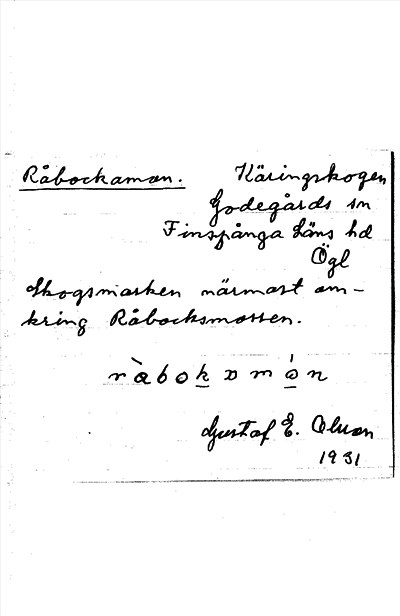 Råbockamon. Käringskogen
Godegårds sn
Finspånga Läns hd
Ögl
Skogsmarken närmast om-
kring Råbocksmossen.
Gustaf E. Olsson
1931